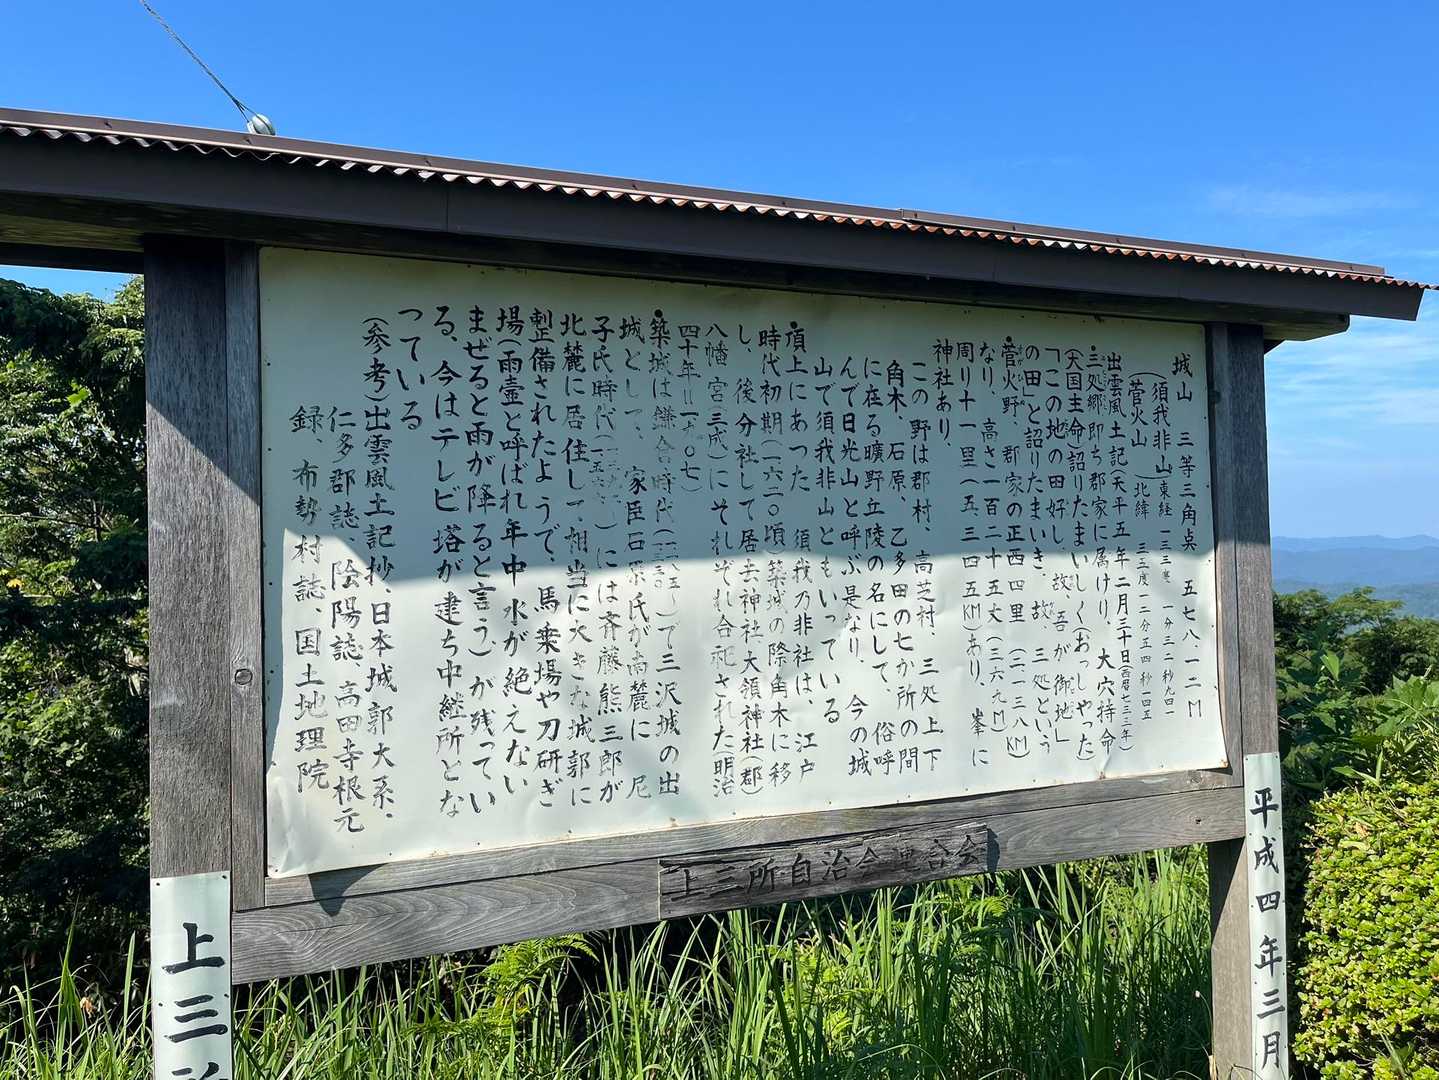 城山 三等三角点 五七八.一二M
(須我非山) 東経 一三三度 一分三二秒九四一
(菅火山) 北緯 三五度一二分五四秒一四五
出雲風土記天平五年二月三十日(西暦七三三年)
・三処郷 即ち郡家に属けり、大穴持命
(天国主命)詔りたまいしく(おっしゃった)
「この地の田好し、故、吾が御地」
の田」と詔りたまいき、故、三処という
・菅火野、郡家の正西四里(二.一三八KM)
なり 高さ一百二十五丈(三六九M)峯に
周り十一里(五.三四五KM)あり、
神社あり
この野は郡村、高芝村、三処上下
角木、石原、乙多田の七か所の間
に在る曠野丘陵の名にして、俗呼
んで日光山と呼ぶ是なり、今の城
山で須我非山ともいっている
・頂上にあった須我乃非社は、江戸
時代初期(一六二〇頃)築城の際角木に移
し、後分社して居去神社大領神社(郡)
八幡宮(三成)にそれぞれ合祀された明治
四十年=一九〇七)
・築城は鎌倉時代(一一八五〜)で三沢城の出
城として、家臣石原氏が南麓に 尼
子氏時代( )には斉藤熊三郎が
北麓に居住して相当に大きな城郭に
整備されたようで、馬乗場や刀研ぎ
場(雨壷と呼ばれ年中水が絶えない
まぜると雨が降ると言う)が残ってい
る、今はテレビ塔が建ち中継所とな
っている
(参考)出雲風土記抄、日本城郭大系、
仁多郡誌、陰陽誌、高田寺根元
録、布勢村誌、国土地理院
上三所自治会連合会
上三
平成四年三月